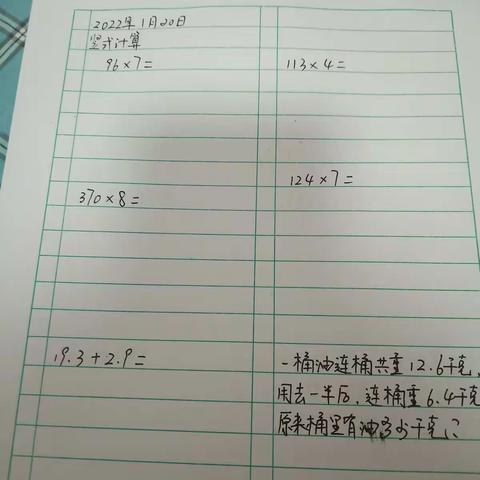 2022年1月20日
竖式计算
96×7=
113×4=
370×8=
124×7=
19.3+2.9=
一桶油连桶共重12.6千克,
用去一半后,连桶重6.4千克
原来桶里有油多少千克?